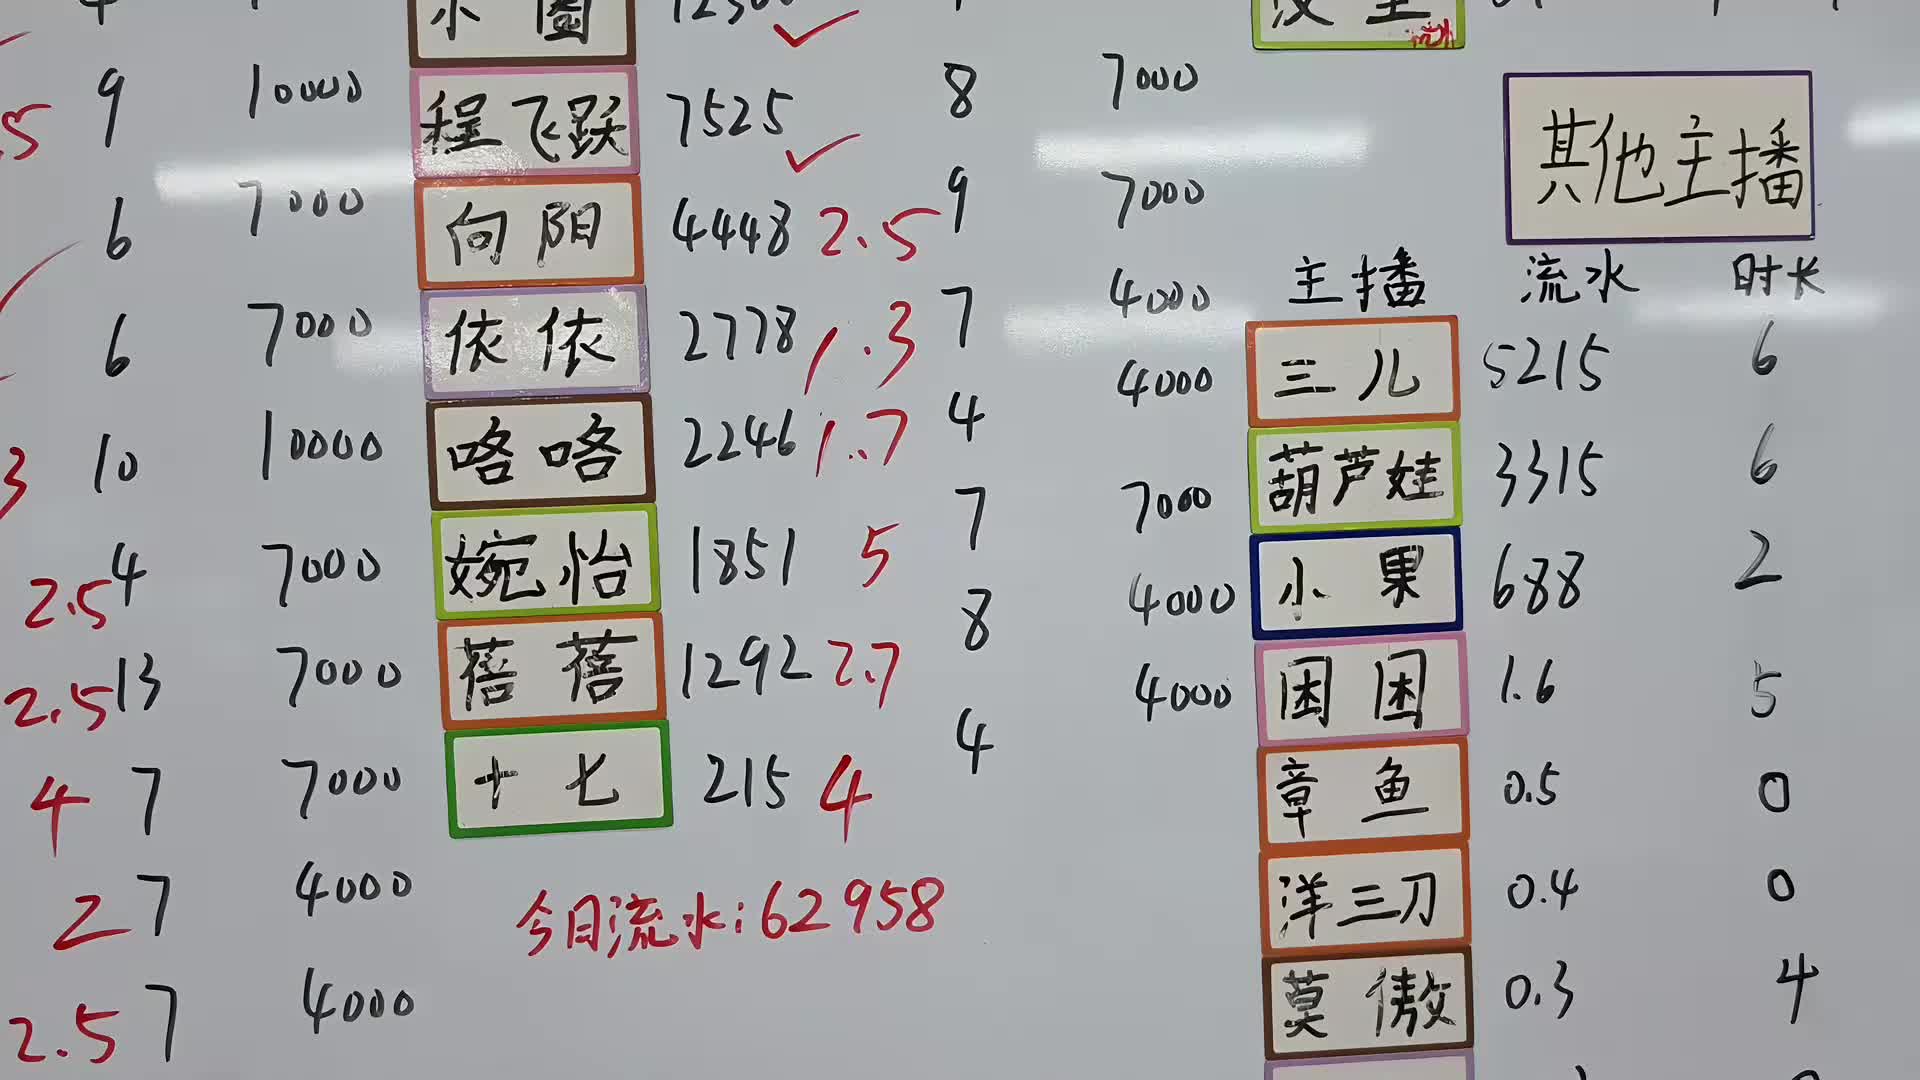 9 10000 程飞跃 7525 8 7000
其他主播
6 7000 向阳 4448 2.5 9 7000
主播 流水 时长
6 7000 依依 2778 1.3 7 4000
三儿 5215 6
3 10 10000 咯咯 2246 1.7 4 4000
葫芦娃 3315 6
2.5 4 7000 婉怡 1851 5 7 7000
小果 688 2
2.5 13 7000 蓓蓓 1292 2.7 8 4000
困困 1.6 5
4 7 7000 十七 215 4 4 4000
章鱼 0.5 0
2 7 4000
今日流水:62958
洋三刀 0.4 0
2.5 7 4000
莫傲 0.3 4